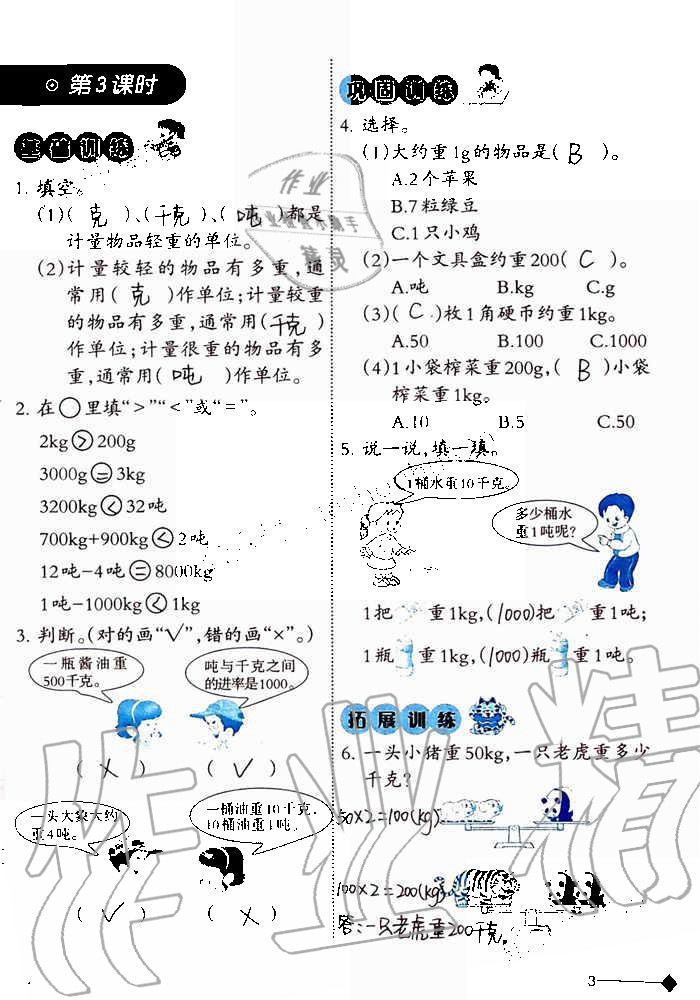 第3课时
基础训练
1. 填空。
(1)( 克 )、(千克)、( 吨 )都是
计量物品轻重的单位。
(2)计量较轻的物品有多重,通
常用( 克 )作单位;计量较重
的物品有多重,通常用(千克)
作单位;计量很重的物品有多
重,通常用( 吨 )作单位。
2. 在○里填“>”“<”或“=”。
2kg > 200g
3000g = 3kg
3200kg < 32吨
700kg+900kg < 2吨
12吨-4吨 = 8000kg
1吨-1000kg < 1kg
3. 判断。(对的画“√”,错的画“×”。)
一瓶酱油重
500千克。
吨与千克之间
的进率是1000。
( × ) ( √ )
一头大象大约
重4吨。
一桶油重10千克,
10桶油重1吨。
( √ ) ( × )
巩固训练
4. 选择。
(1)大约重1g的物品是( B )。
A.2个苹果
B.7粒绿豆
C.1只小鸡
(2)一个文具盒约重200( C )。
A.吨 B.kg C.g
(3)( C )枚1角硬币约重1kg。
A.50 B.100 C.1000
(4)1小袋榨菜重200g,( B )小袋
榨菜重1kg。
A.10 B.5 C.50
5. 说一说,填一填。
1桶水重10千克。
多少桶水
重1吨呢?
1把 重1kg,(1000)把 重1吨;
1瓶 重1kg,(1000)瓶 重1吨。
拓展训练
6. 一头小猪重50kg,一只老虎重多少
千克?
50×2=100(kg)
100×2=200(kg)
答:一只老虎重200千克。
3
作业
作业精